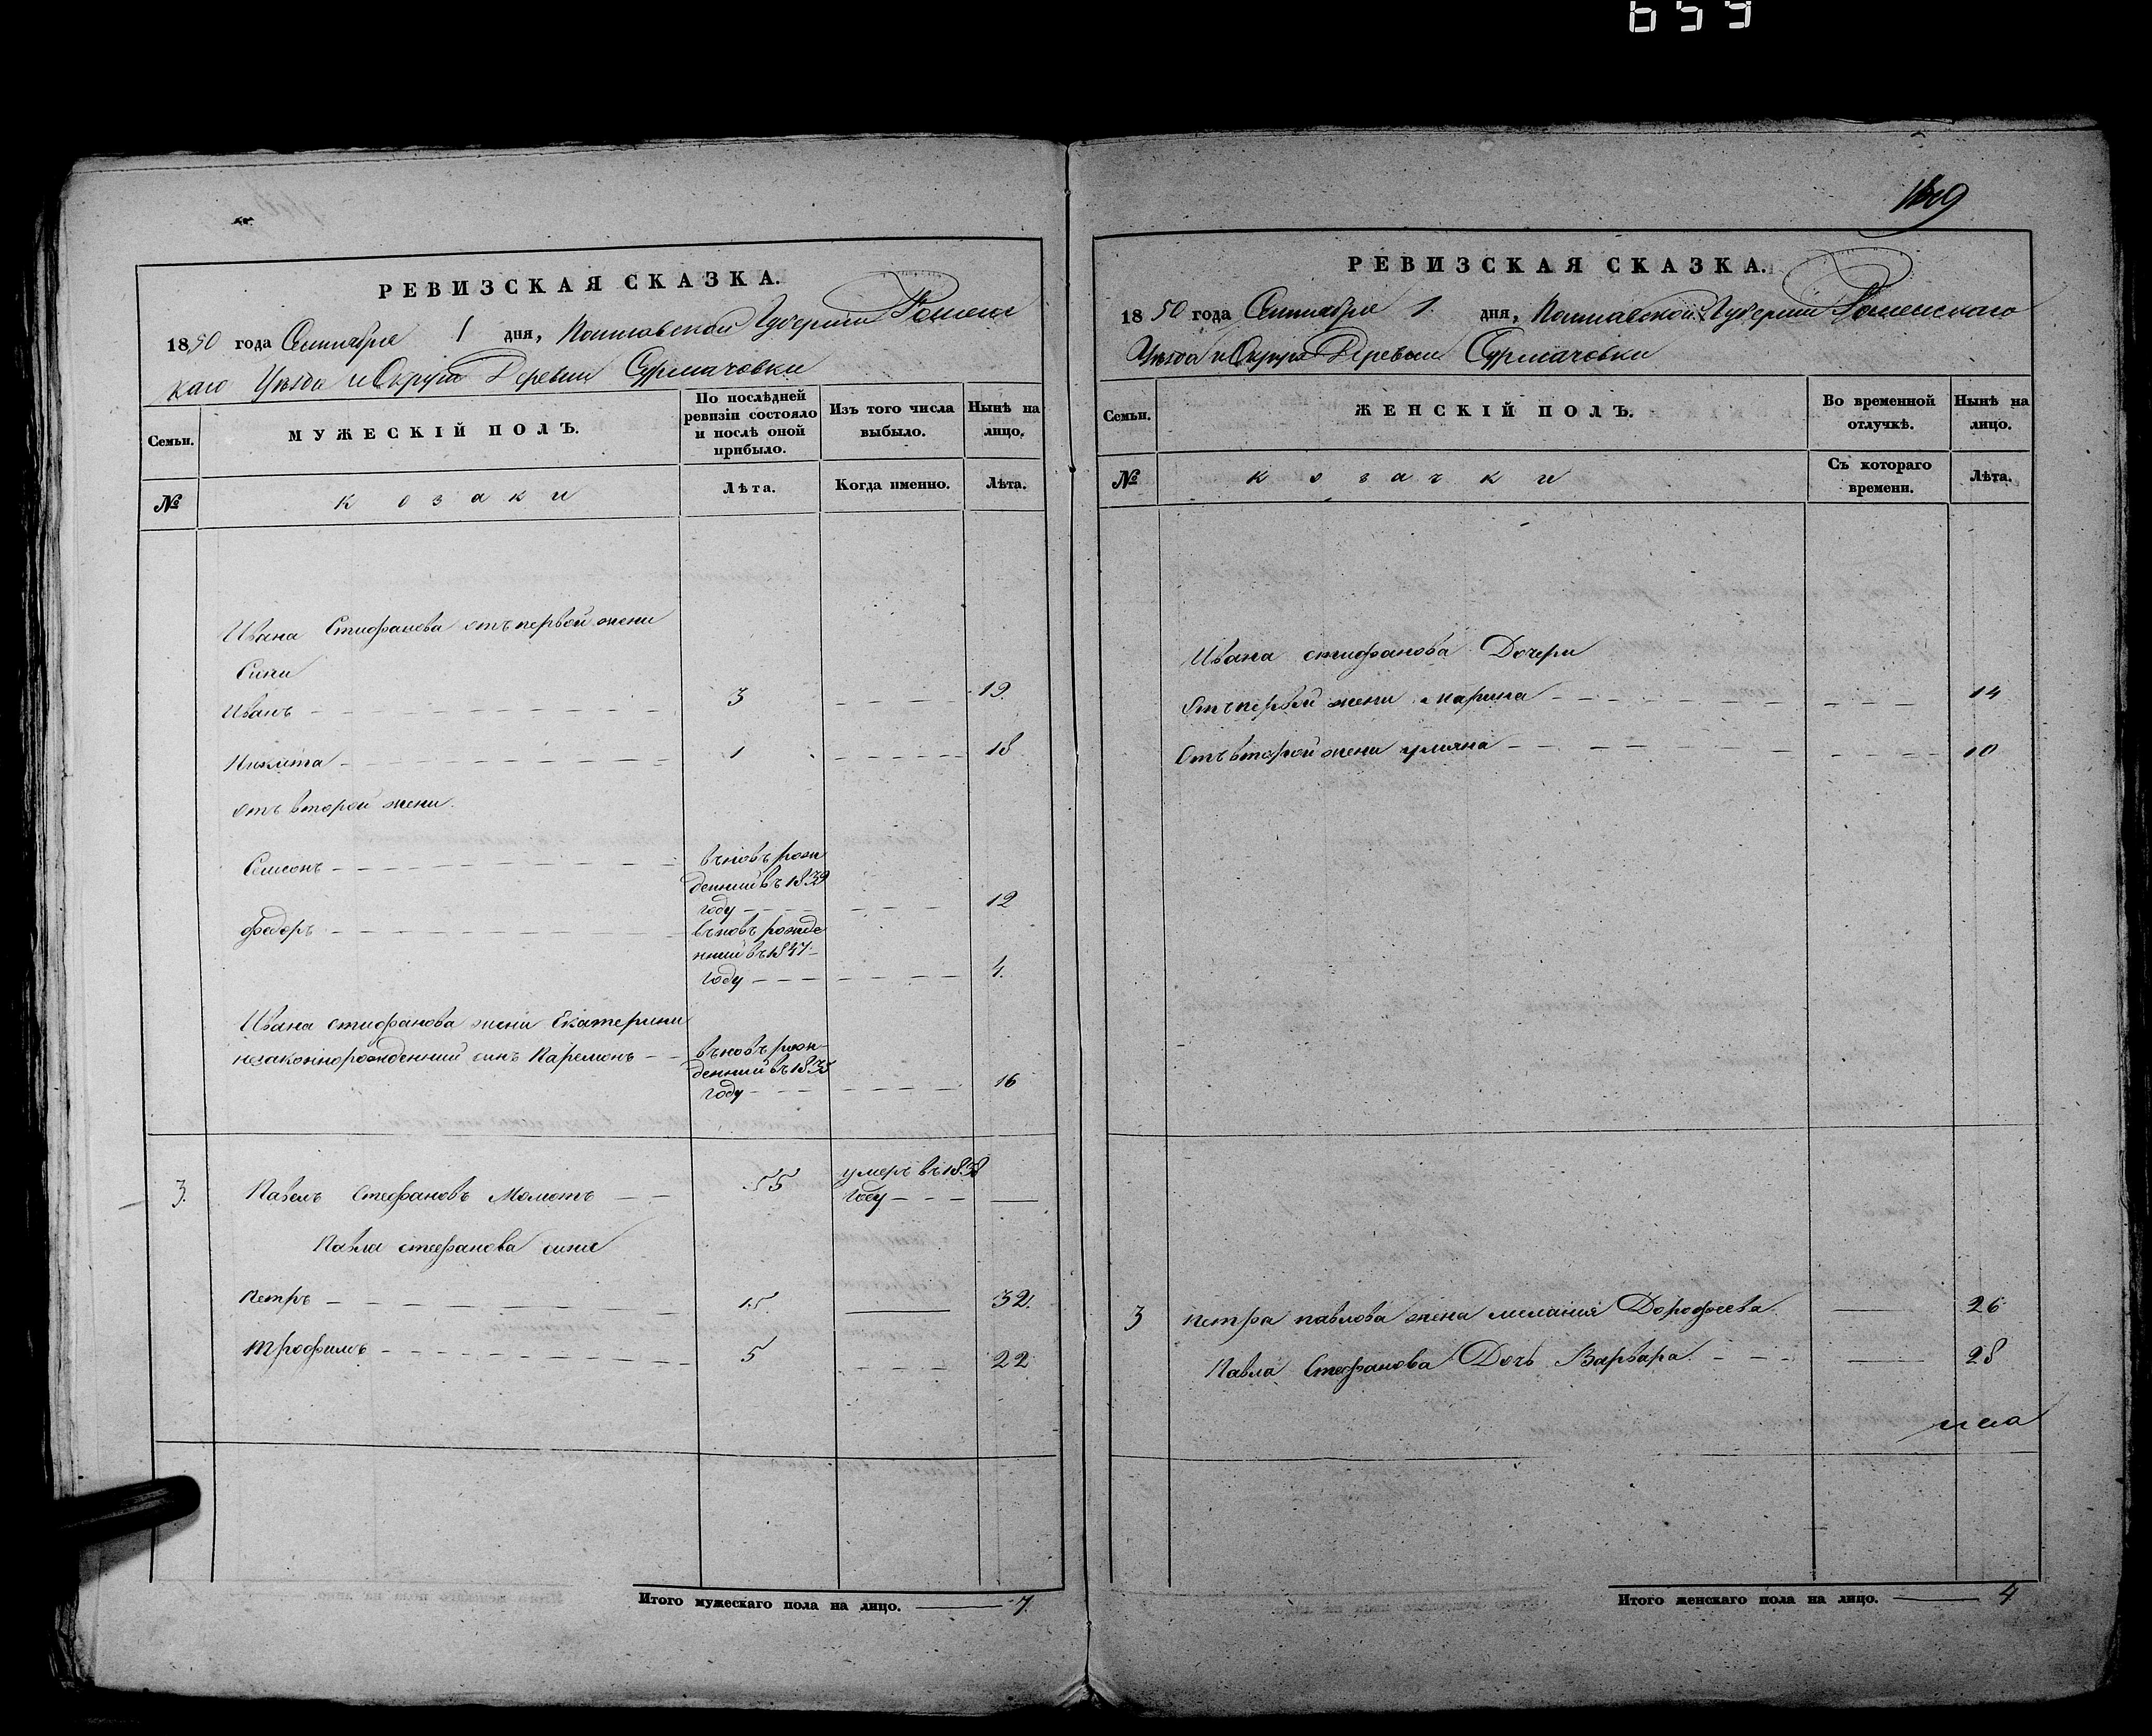 659
РЕВИЗСКАЯ СКАЗКА.
1850 года Сентября 1 дня, Полтавской Губернии Роменс
каго Уѣзда и Округа Деревни Сурмачовки
Семьи.
МУЖЕСКІЙ ПОЛЪ.
По послѣдней
ревизіи состояло
и послѣ оной
прибыло.
Изъ того числа
выбыло.
Нынѣ на
лицо.
№
козаки
Лѣта.
Когда именно.
Лѣта.
Ивана Стифанова отъ первой жени
Сини
Иванъ 3 19.
Никита 1 18
отъ второй жени.
Семенъ
вновъ рож
денний въ 1839
году 12
федоръ
вновъ рожде
нний въ 1847
году 4.
Ивана стифанова жени Екатерини
незаконнорожденний синъ Паремонъ
вновъ рож
денний въ 1835
году 16
3. Павелъ Стефановъ Момотъ 55
умеръ въ 1838
году
Павла стефанова сини
Петръ 15 32.
Трофимъ 5 22
Итого мужескаго пола на лицо. 7.
РЕВИЗСКАЯ СКАЗКА.
1850 года Сентября 1. дня, Полтавской Губернии Роменскаго
Уѣзда и Округа Деревни Сурмачовки
Семьи.
ЖЕНСКІЙ ПОЛЪ.
Во временной
отлучкѣ.
Нынѣ на
лицо.
№
козачки
Съ котораго
времени.
Лѣта.
Ивана стифанова Дочери
Отъ первой жени марина 14
Отъ второй жени улияна 10
3 петра павлова жена мелания Дорофеева 26
Павла Стефанова Дочь Варвара. 28
Итого женскаго пола на лицо. 4